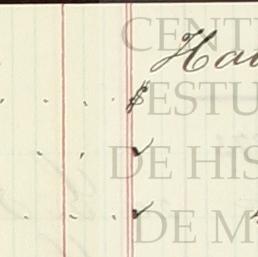 CENT
Ha
$ ESTU
DE HIS
DE M